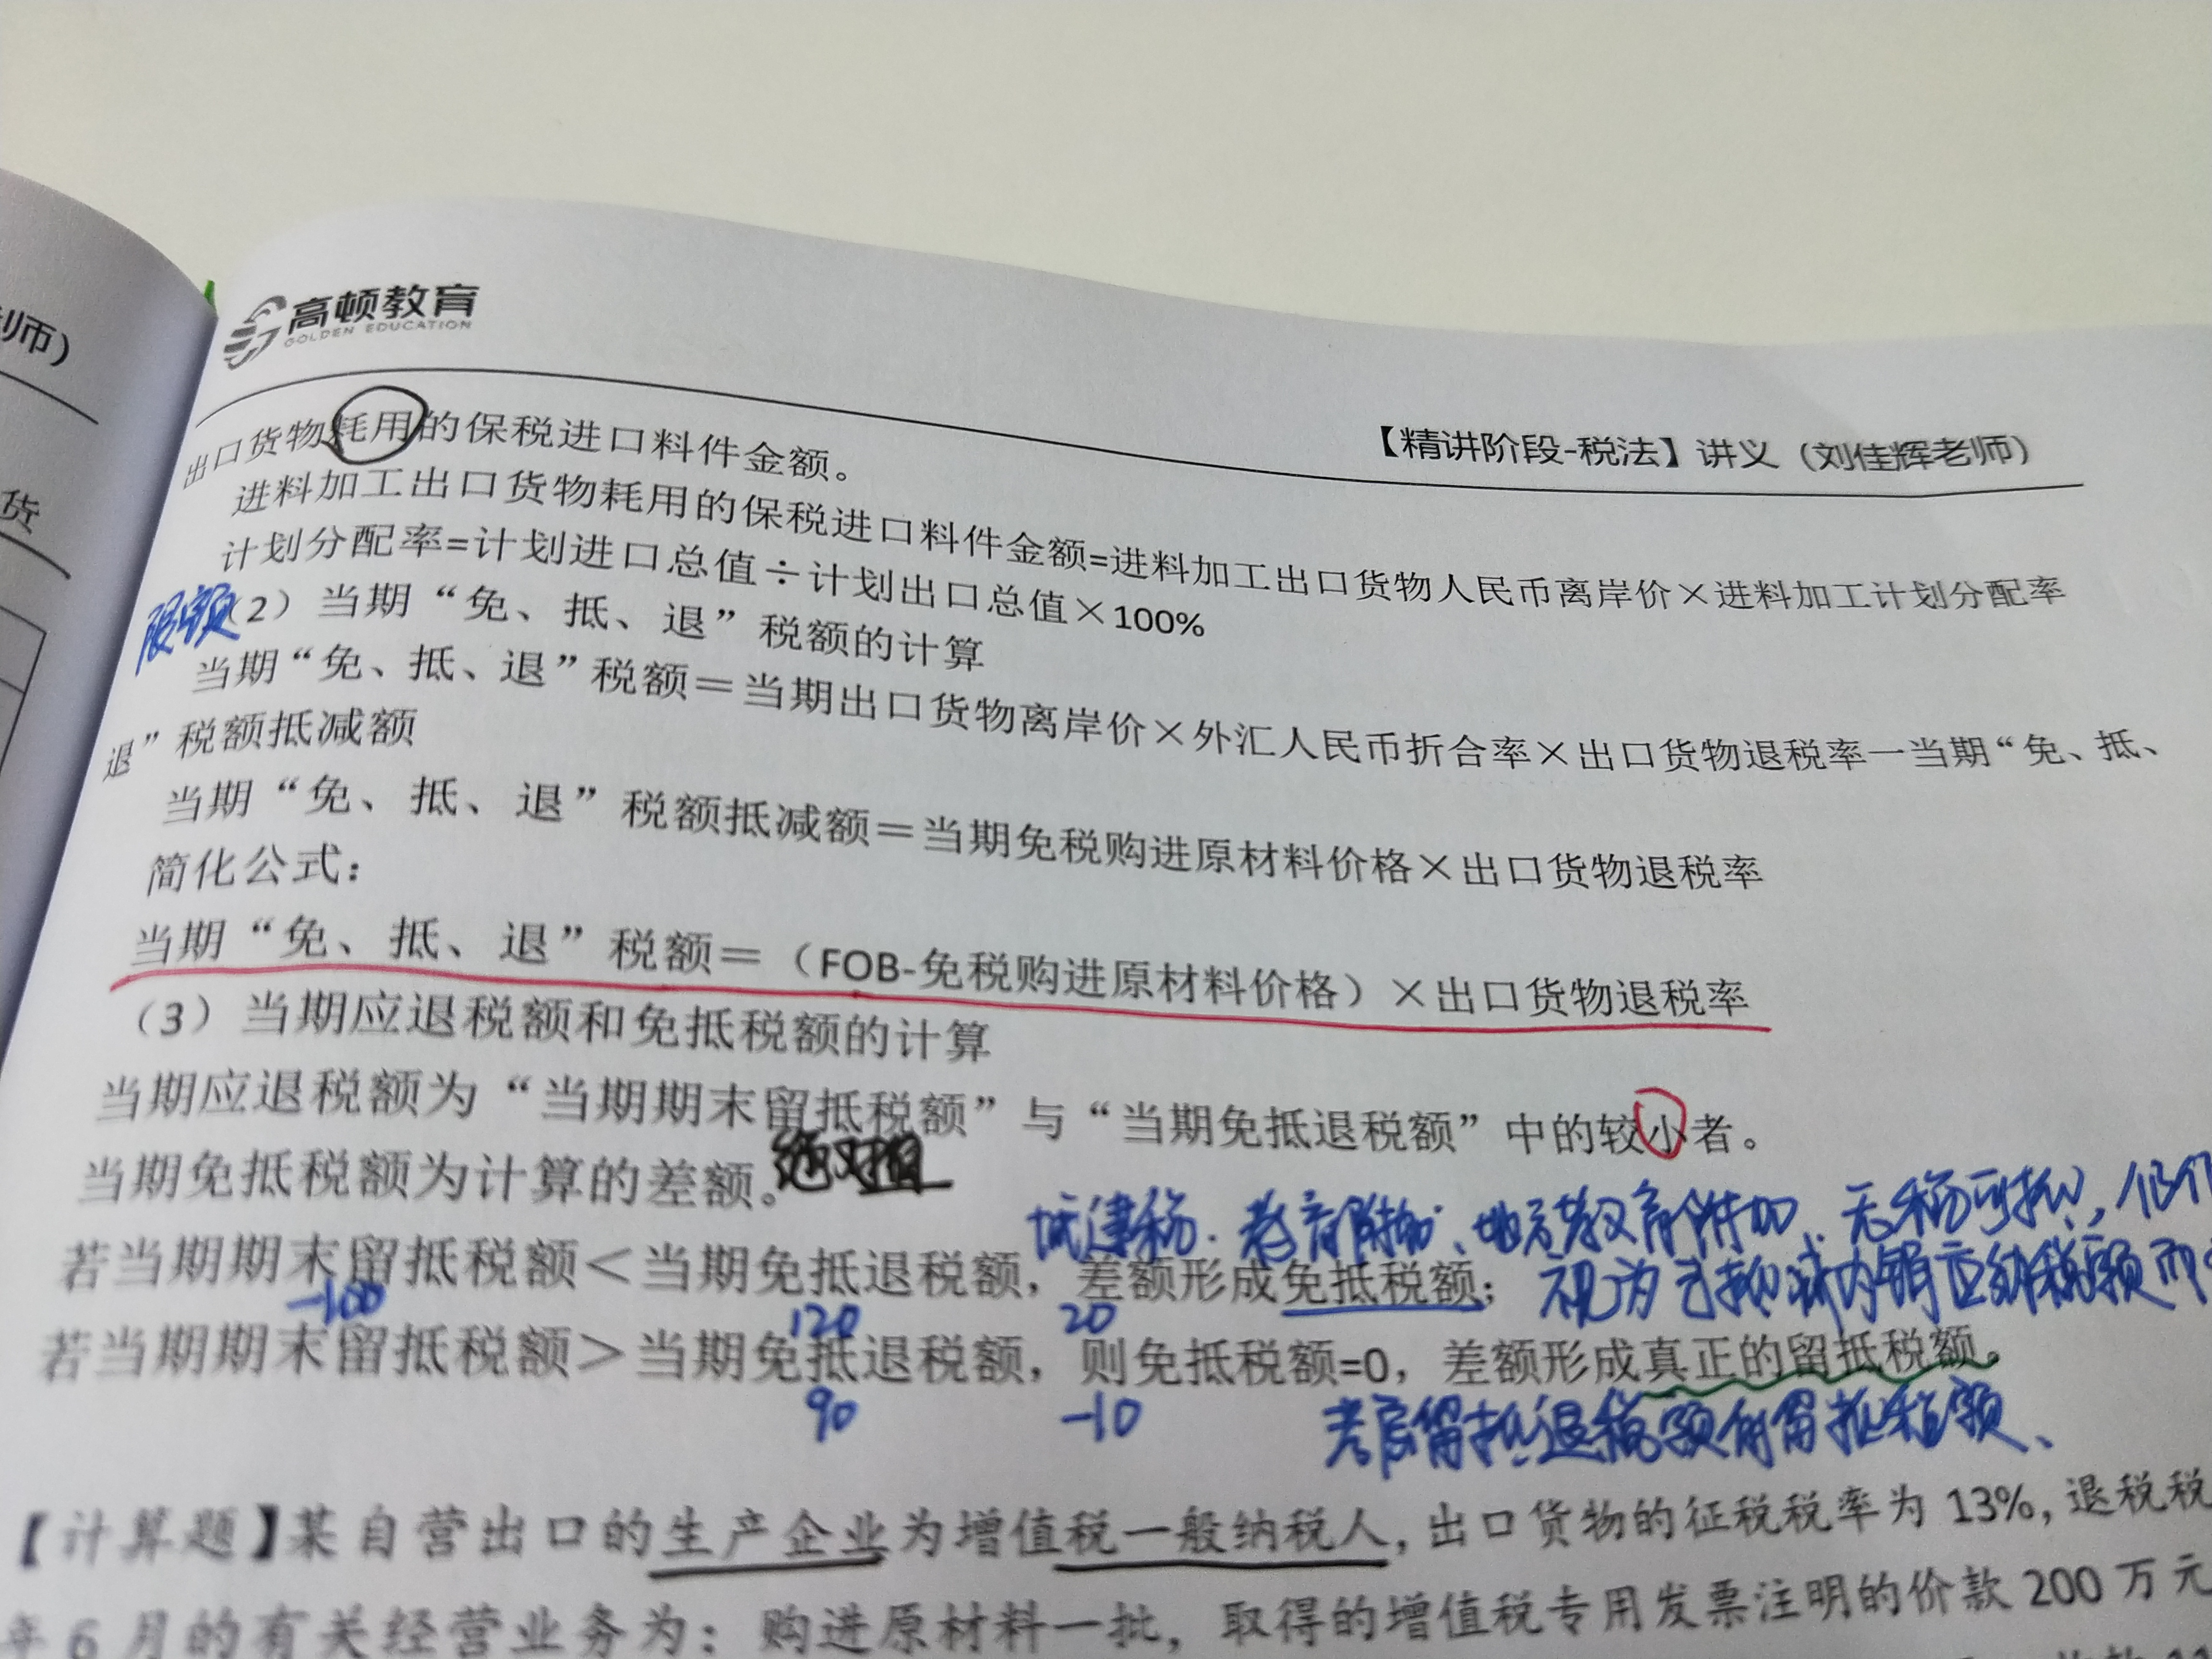 高顿教育
GOLDEN EDUCATION
【精讲阶段-税法】讲义（刘佳辉老师）
师）
货
出口货物耗用的保税进口料件金额。
进料加工出口货物耗用的保税进口料件金额=进料加工出口货物人民币离岸价×进料加工计划分配率
计划分配率=计划进口总值÷计划出口总值×100%
限额（2）当期“免、抵、退”税额的计算
当期“免、抵、退”税额＝当期出口货物离岸价×外汇人民币折合率×出口货物退税率一当期“免、抵、
退”税额抵减额
当期“免、抵、退”税额抵减额＝当期免税购进原材料价格×出口货物退税率
简化公式：
当期“免、抵、退”税额＝（FOB-免税购进原材料价格）×出口货物退税率
（3）当期应退税额和免抵税额的计算
当期应退税额为“当期期末留抵税额”与“当期免抵退税额”中的较小者。
当期免抵税额为计算的差额。绝对值
城建税、教育附加、地方教育附加、无税可抵，
若当期期末留抵税额＜当期免抵退税额，差额形成免抵税额；视为已抵减内销应纳税额而
-100 120 20
若当期期末留抵税额＞当期免抵退税额，则免抵税额=0，差额形成真正的留抵税额。
90 -10 留抵退税额的留抵税额、
【计算题】某自营出口的生产企业为增值税一般纳税人，出口货物的征税税率为 13%，退税税
年 6 月的有关经营业务为：购进原材料一批，取得的增值税专用发票注明的价款 200 万元